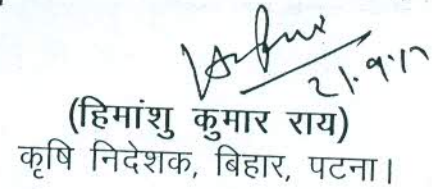 21.9.17
(हिमांशु कुमार राय)
कृषि निदेशक, बिहार, पटना।